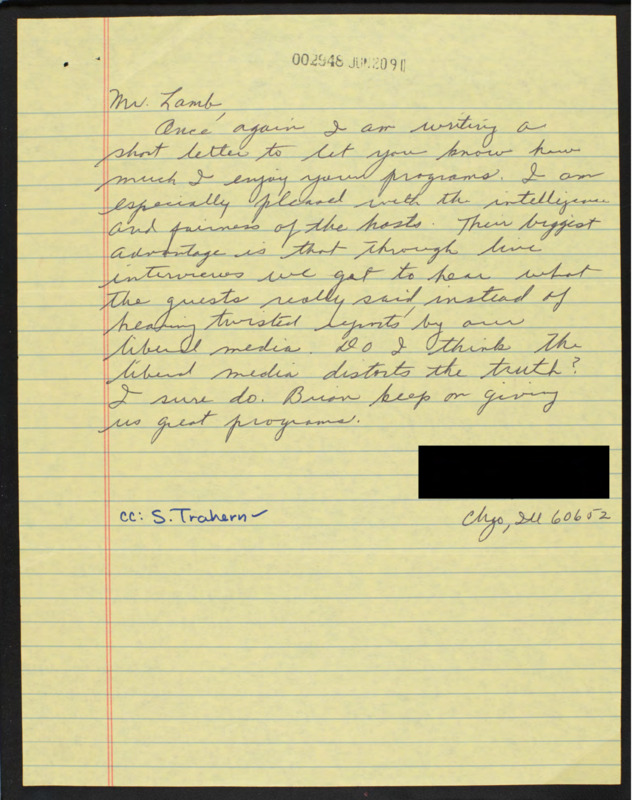 002948 JUN 20 90
Mr. Lamb,
Once again I am writing a
short letter to let you know how
much I enjoy your programs. I am
especially pleased with the intelligence
and fairness of the hosts. Their biggest
advantage is that through live
interviews we get to hear what
the guests really said, instead of
hearing twisted reports by our
liberal media. Do I think the
liberal media distorts the truth?
I sure do. Brian keep on giving
us great programs.
cc: S. Trahern
Chgo, Ill 60652